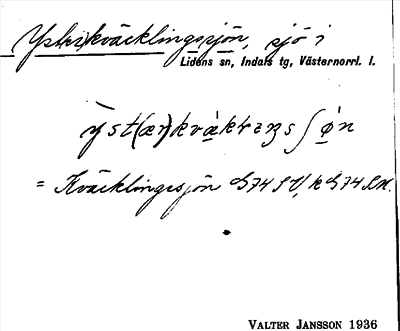 Yst(er)kväcklingssjön, sjö i
Lidens sn, Indals tg, Västernorrl. l.
ỳst(ær)kvàkleŋsʃǿn
= Kväcklingssjön G74 SV, k G74
VALTER JANSSON 1936